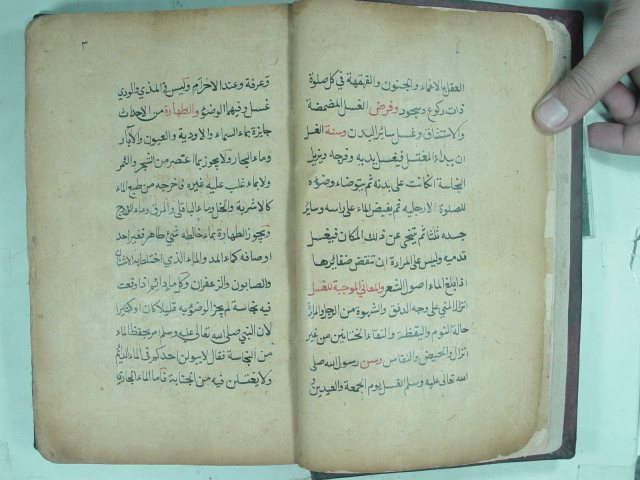 العقل بالاغماء والجنون والقهقهة في كل صلوة
ذات ركوع وسجود وفرض الغسل المضمضة
والاستنشاق وغسل سائر البدن وسنة الغسل
ان يبداء المغتسل فيغسل يديه وفرجه ويزيل
النجاسة ان كانت على بدنه ثم يتوضاء وضوءه
للصلوة الا رجليه ثم يفيض الماء على راسه وسائر
جسده ثلثا ثم يتنحى عن ذلك المكان فيغسل
قدميه وليس على المراءة ان تنقض ضفائرها
اذا بلغ الماء اصول الشعر والمعاني الموجبة للغسل
انزال المني على وجه الدفق والشهوة من الرجل والمراة
حالة النوم واليقظة والتقاء الختانين من غير
انزال والحيض والنفاس وسن رسول الله صلى
الله تعالى عليه وسلم الغسل يوم الجمعة والعيدين و
٣
وعرفة وعند الاحرام وليس في المذي والودي
غسل وفيهما الوضوء والطهارة من الاحداث
جايزة بماء السماء والاودية والعيون والآبار
وماء البحار ولا يجوز بما اعتصر من الشجر والثمر
ولا بماء غلب عليه غيره فاخرجه من طبع الماء
كالاشربة والخل وماء الباقلى والمرق وماء الزردج
ويجوز الطهارة بماء خالطه شيء طاهر فغير احد
اوصافه كماء المد والماء الذي اختلط به الاشنان
والصابون والزعفران وكل ماء دايم اذا وقعت
فيه نجاسة لم يجز الوضوء به قليلا كان او كثيرا
لان النبي صلى الله تعالى عليه وسلم امر بحفظ الماء
من النجاسة فقال لا يبولن احدكم في الماء الدائم
ولا يغتسلن فيه من الجنابة فاما الماء الجاري